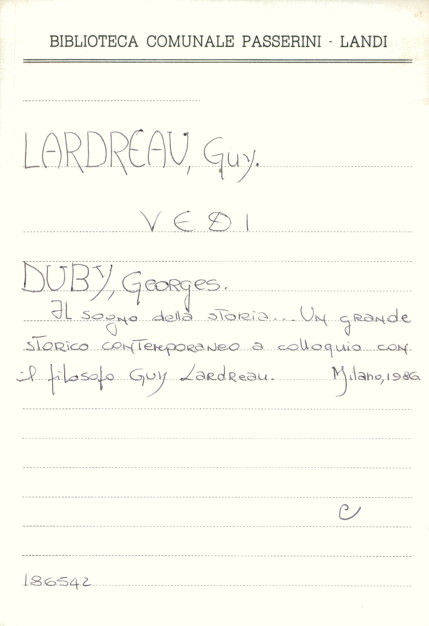 BIBLIOTECA COMUNALE PASSERINI - LANDI
LARDREAU, Guy.
VEDI
DUBY, Georges.
Il sogno della storia... Un grande
storico contemporaneo a colloquio con
il filosofo Guy Lardreau. Milano, 1986
C
186542